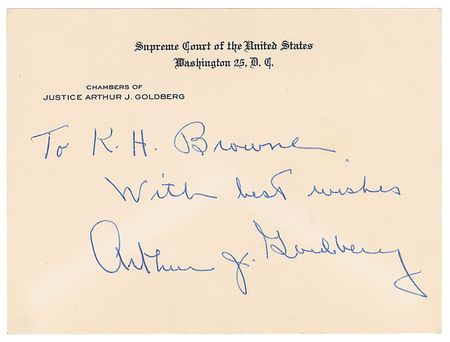 Supreme Court of the United States
Washington 25, D. C.
CHAMBERS OF
JUSTICE ARTHUR J. GOLDBERG
To K. H. Browne
With best wishes
Arthur J. Goldberg